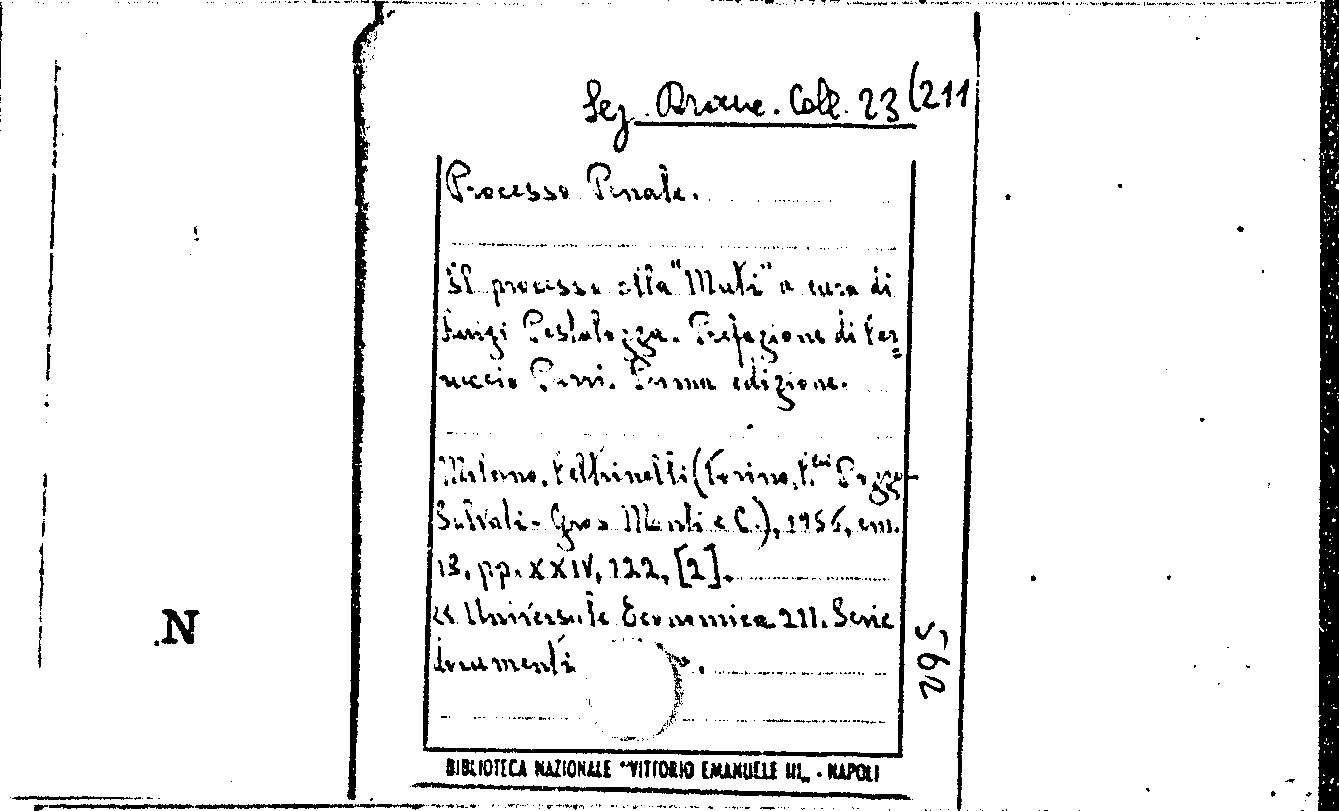 Sez. Coll. 23 (211
Processo Penale.
Il processo alla "Muti" a cura di
Luigi Pestalozza. Prefazione di Fer=
ruccio Parri. Prima edizione.
Milano, Feltrinelli (Torino, F.lli Pozzo-
Salvati-Gros Monti e C.), 195, cm.
18, pp. XXIV, 122, [2].
«Universale Economica 211. Serie
documenti
N
295
BIBLIOTECA NAZIONALE "VITTORIO EMANUELE III„ - NAPOLI